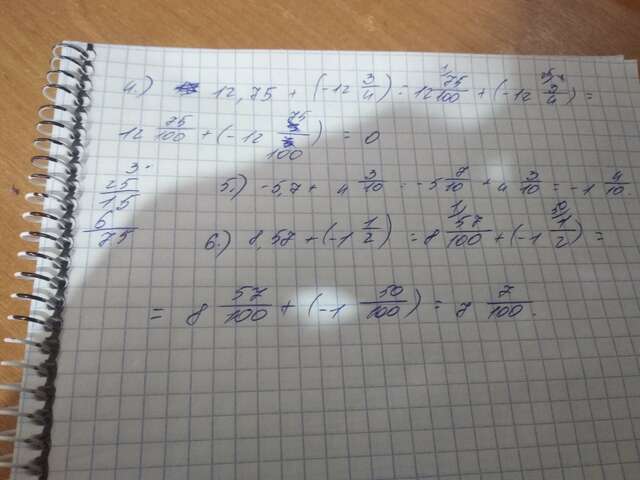 4.) 12,75 + (-12 3/4) = 12 75/100 + (-12 3/4) =
12 75/100 + (-12 75/100) = 0
5.) -5,7 + 4 3/10 = -5 7/10 + 4 3/10 = -1 4/10.
25
15
75
6.) 8,57 + (-1 1/2) = 8 57/100 + (-1 1/2) =
= 8 57/100 + (-1 50/100) = 7 7/100.